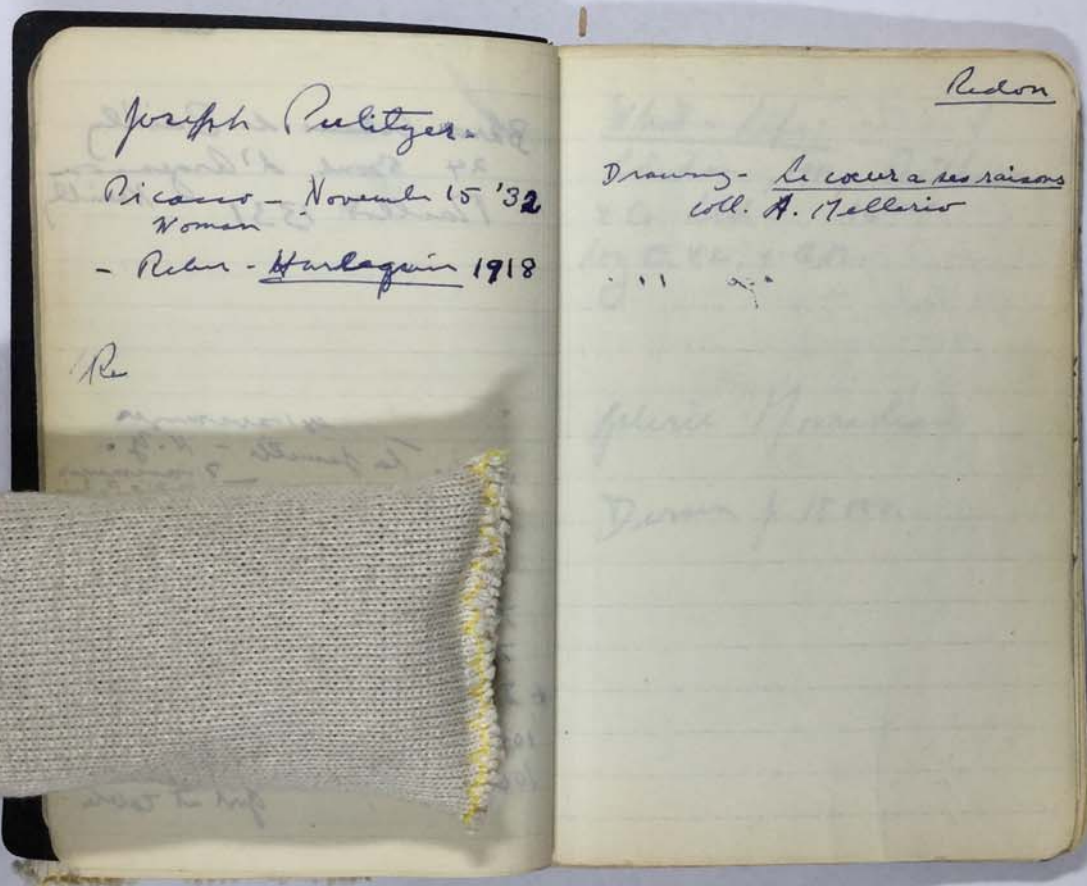 Joseph Pulitzer -
Picasso - November 15 '32
Woman
- Reber - Harlequin 1918
Re
Redon
Drawing - Le coeur a ses raisons
coll. A. Mellerio